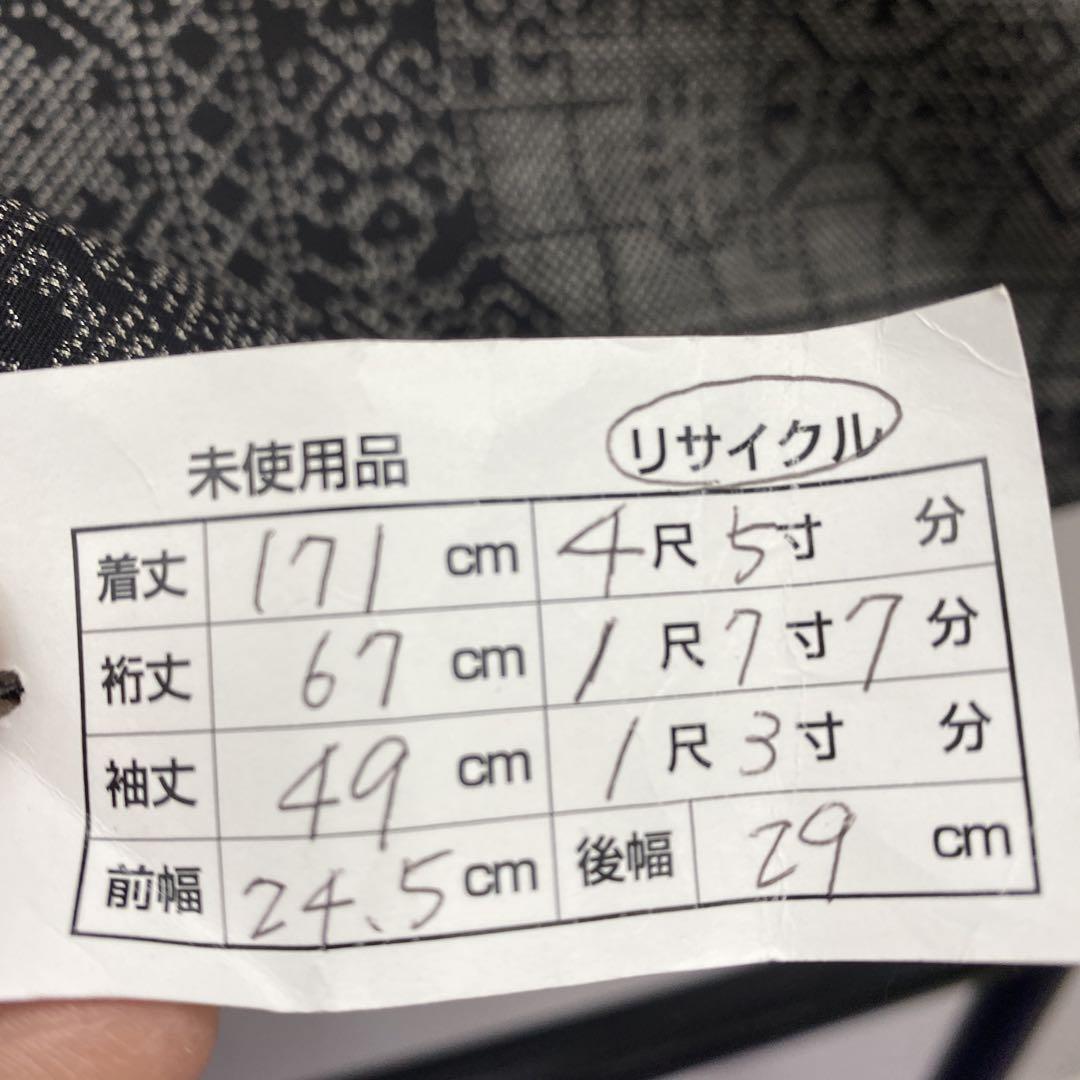 未使用品 リサイクル
着丈 171 cm 4尺5寸 分
裄丈 67 cm 1尺7寸7分
袖丈 49 cm 1尺3寸 分
前幅 24.5cm 後幅 29 cm